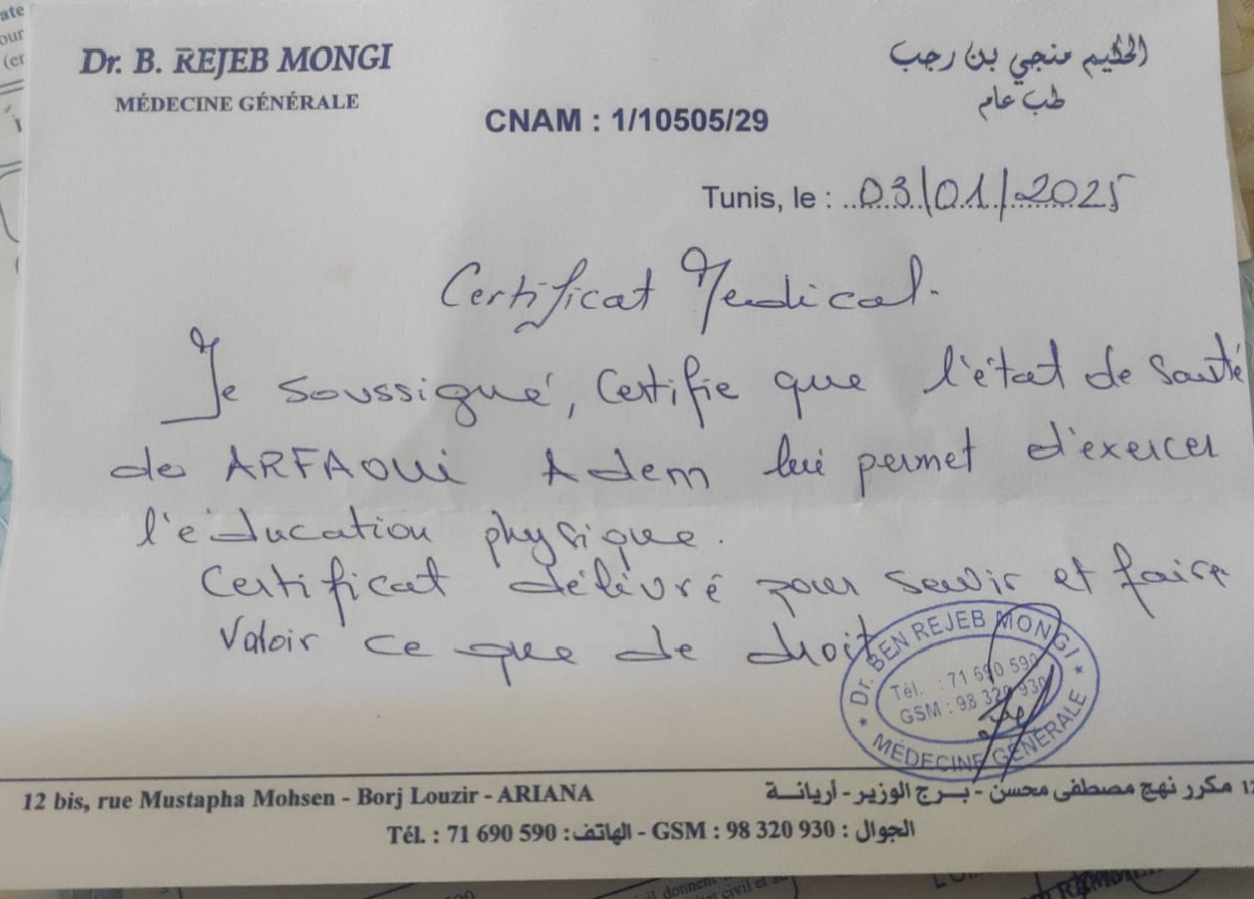 Dr. B. REJEB MONGI
MÉDECINE GÉNÉRALE
الحكيم منجي بن رجب
طب عام
CNAM : 1/10505/29
Tunis, le : 03/01/2025
Certificat Medical.
Je soussigné, Certifie que l'état de santé
de ARFAOUI Adem lui permet d'exercer
l'éducation physique.
Certificat délivré pour servir et faire
Valoir ce que de droit
Dr. BEN REJEB MONGI
Tél. : 71 690 590
GSM : 98 320 930
MÉDECINE GÉNÉRALE
12 bis, rue Mustapha Mohsen - Borj Louzir - ARIANA
12 مكرر نهج مصطفى محسن - برج الوزير - أريانة
Tél. : 71 690 590 : الهاتف - GSM : 98 320 930 : الجوال